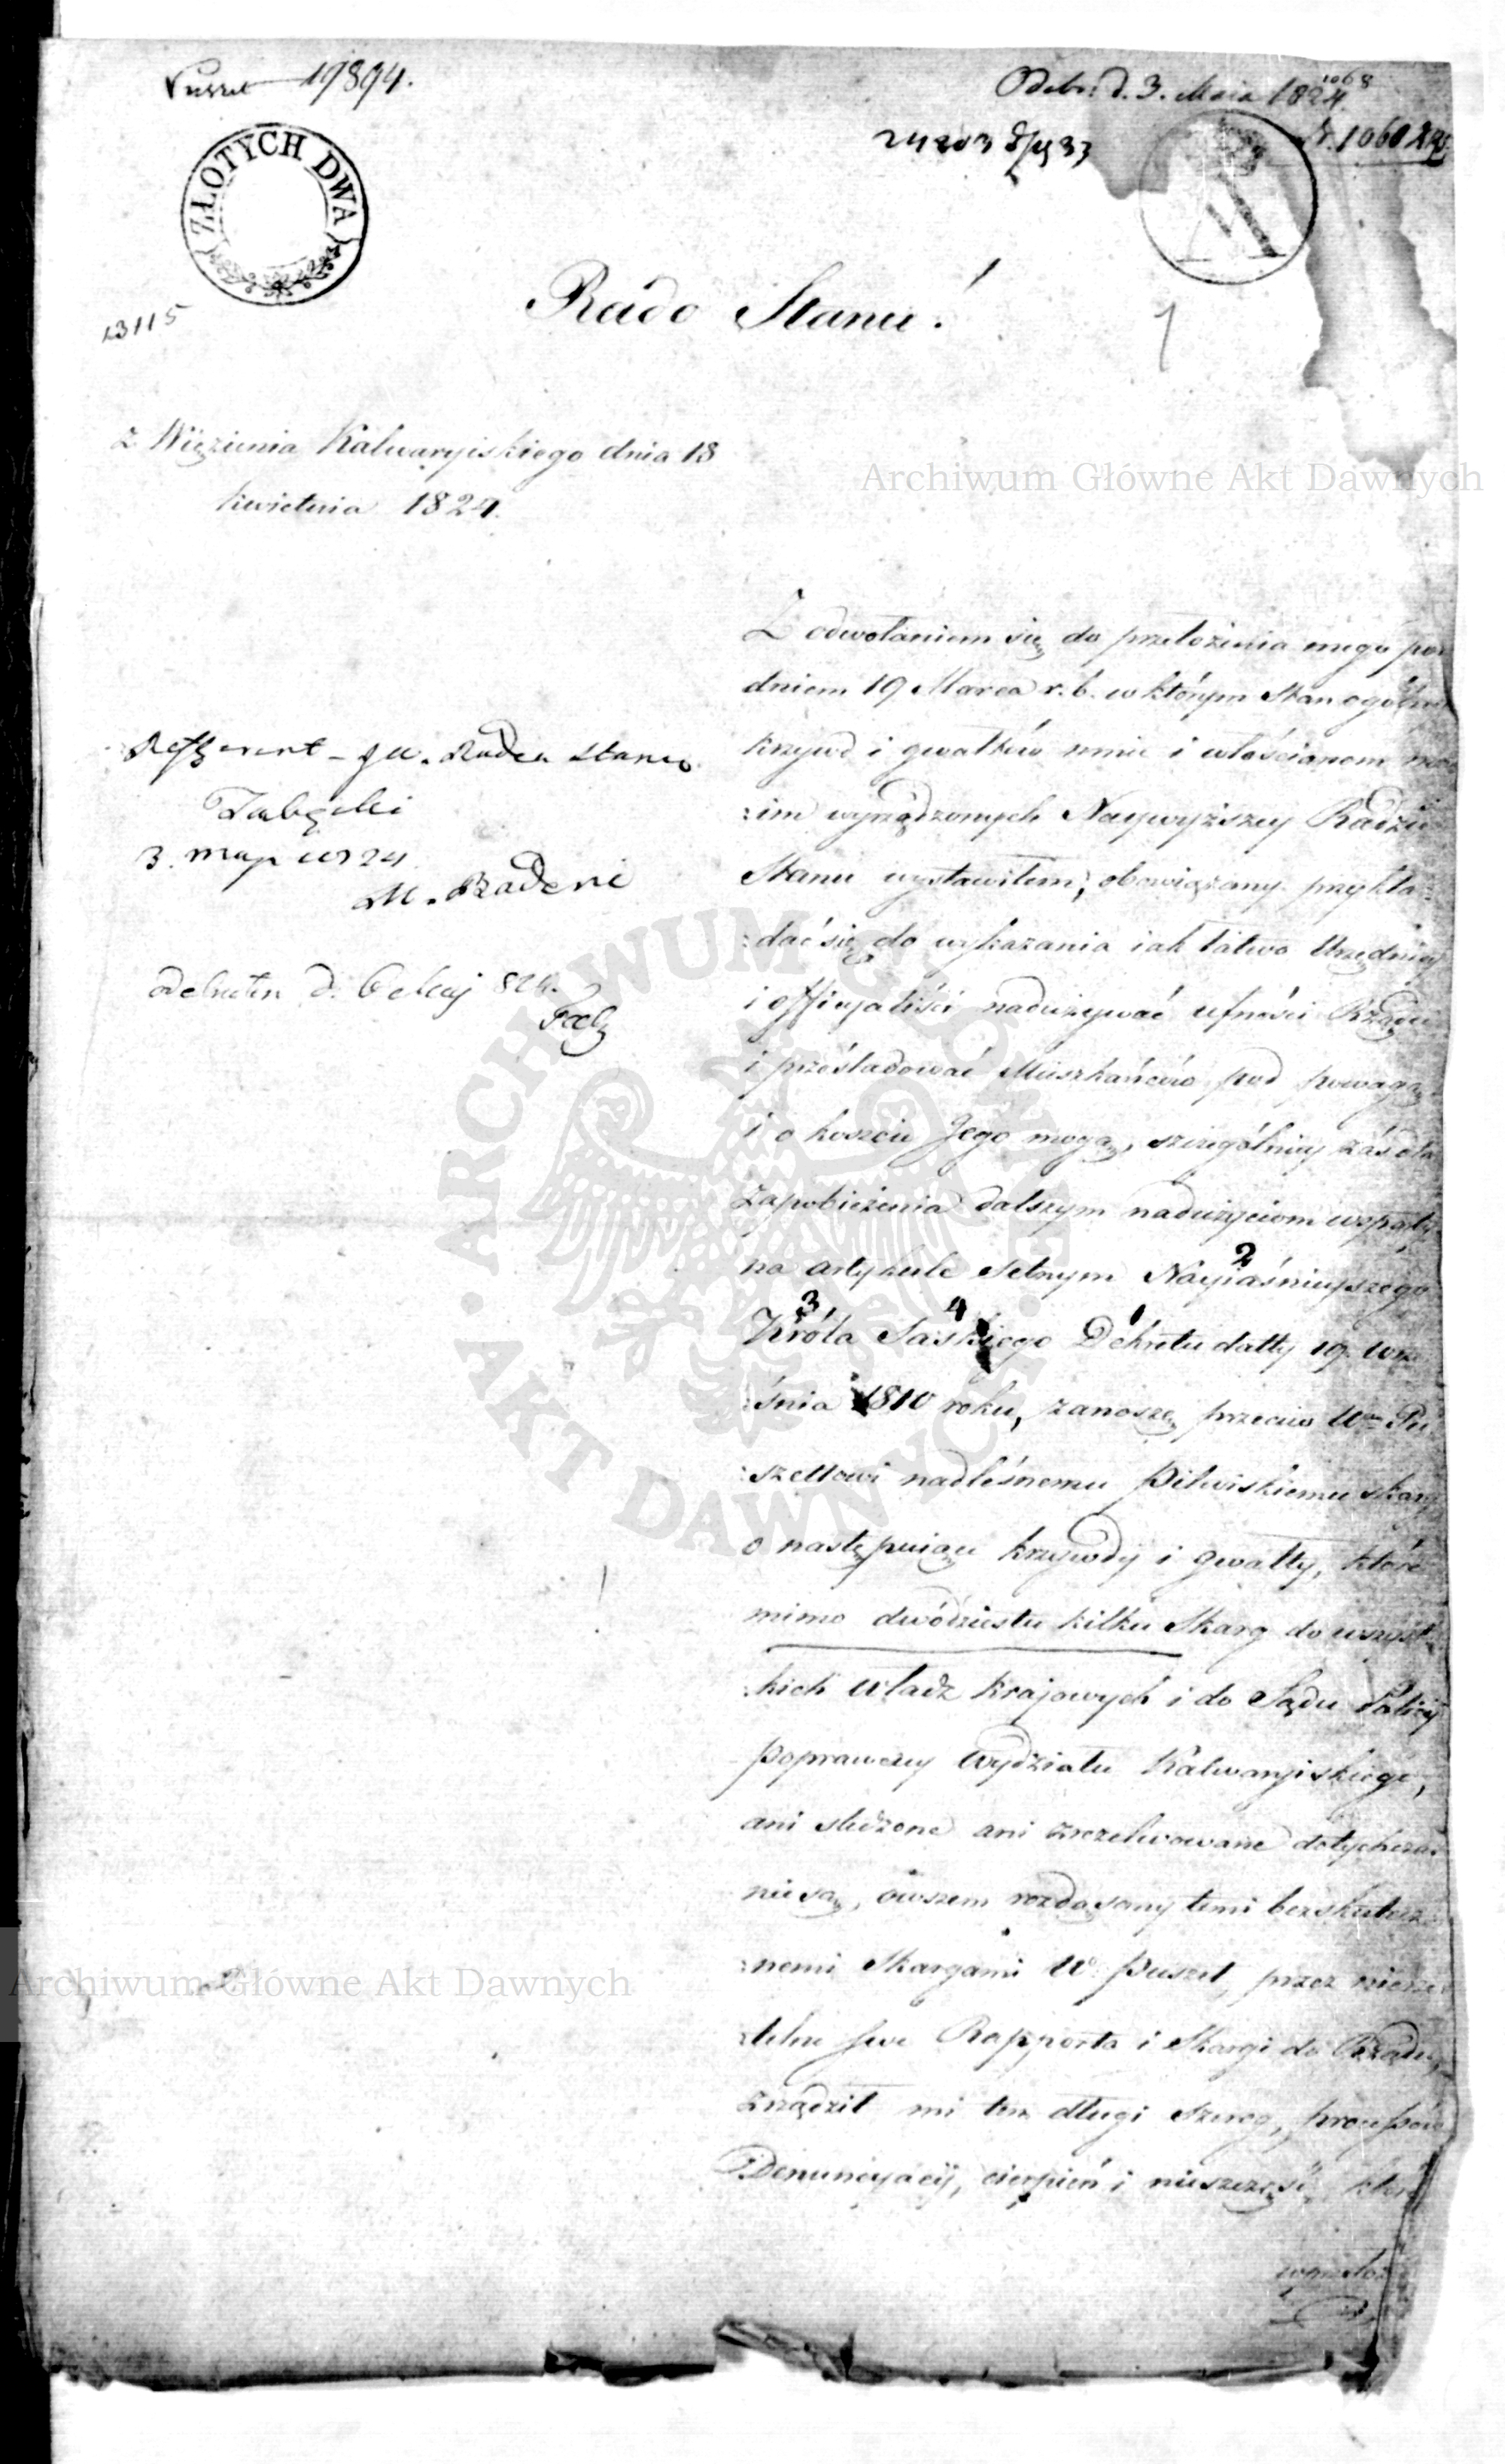 Puszet 19894.
Odebr. d. 3. Maia 1824.
1068
ZŁOTYCH DWA
13115
Rado Stanu!
1
z Więzienia Kalwaryiskiego dnia 18
kwietnia 1824.
Archiwum Główne Akt Dawnych
Z odwołaniem się do przełożenia mego pod
dniem 19 Marca r. b. w którym Stan ogólny
krzywd i gwałtów mnie i włościanom mo
:im wyrządzonych Naywyższey Radzie
Stanu wystawiłem, obowiązany przykła:
:dać się do wykazania iak łatwo Urzędnicy
i officyaliści nadużywać ufności Rządu
i prześladować Mieszkańców pod powagą
i o koszcie Jego mogą, szczególniey zaś dla
zapobieżenia dalszym nadużyciom wsparty
na artykule setnym Nayiaśnieyszego
2
Króla Saskiego Dekretu datty 19. wrze
3 4 1
:śnia 1810 roku, zanoszę przeciw Wmu Pu
:szettowi nadleśnemu Pilwiskiemu skargę
o następuiące krzywdy i gwałty, które
mimo dwódziestu kilku Skarg do wszyst
:kich władz krajowych i do Sądu Policyi
Poprawczey Wydziału Kalwaryiskiego,
ani śledzone ani zrezelwowane dotychczas
nie są, owszem rozdąsany temi bezskutecz
:nemi Skargami W. Puszet, przez nierze
:telne swe Rapporta i Skargi do Rządu,
zrządził mi ten długi szereg, processów
Denuncyacij, cierpień i nieszczęść, które
Refferent - JW. Radca Stanu
3. maja 1824
M. Badeni
ARCHIWUM GŁÓWNE
AKT DAWNYCH
Archiwum Główne Akt Dawnych